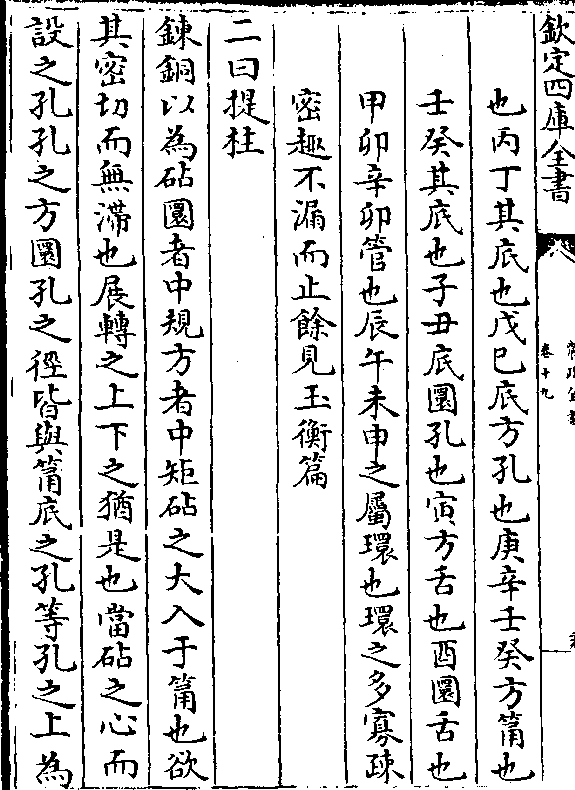 欽定四庫全書
卷十九
也丙丁其底也戊巳底方孔也庚辛壬癸方筩也
壬癸其底也子丑底圜孔也寅方舌也酉圜舌也
甲卯辛卯管也辰午未申之屬環也環之多寡疎
密趣不漏而止餘見玉衡篇
二曰提柱
鍊銅以為砧圜者中規方者中矩砧之大入于筩也欲
其密切而無滯也展轉之上下之猶是也當砧之心而
設之孔孔之方圜孔之徑皆與筩底之孔等孔之上為